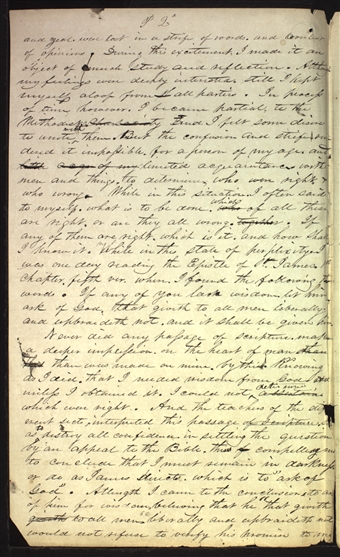 P 2
and zeal, were lost in a strife of words, and contests
of opinions. During this excitement, I made it an
object of much study and reflection. Altho
my feelings were deeply interested, still I kept
myself aloof from all parties. In process
of time however, I became partial, to the
Methodists and I felt some desire
to unite with them. But the confusion and strife
dered it impossible, for a person of my age, and
limited acquaintance with
men and things, to determine who were right &
who wrong. While in this situation I often said
to myself, what is to be done, which of all these
are right, or are they all wrong together. If
any of them are right, which is it, and how shall
I know it. While in this state of perplexity, I
was one day reading the Epistle of St. James,
Chapter, fifth ver. when I found the following
words. If any of you lack wisdom let him
ask of God, that giveth to all men liberally
and upbraideth not, and it shall be given him
Never did any passage of scripture, make
a deeper impression, on the heart of man
than was made on mine, by this. Knowing
as I did, that I needed wisdom from God and
until I obtained it, I could not, determine
which was right. And the teachers of the dif
erent sects, interpreted this passage of Scripture,
as to destroy all confidence in settling the question
by an appeal to the Bible, this compelled me
to conclude that I must remain in darkness
or do as James directs, which is to "ask of
God". Although I came to the conclusion to ask
of him for wisdom, believing that he that giveth
to all men liberally and upbraideth not
would not refuse to verify his promise to me